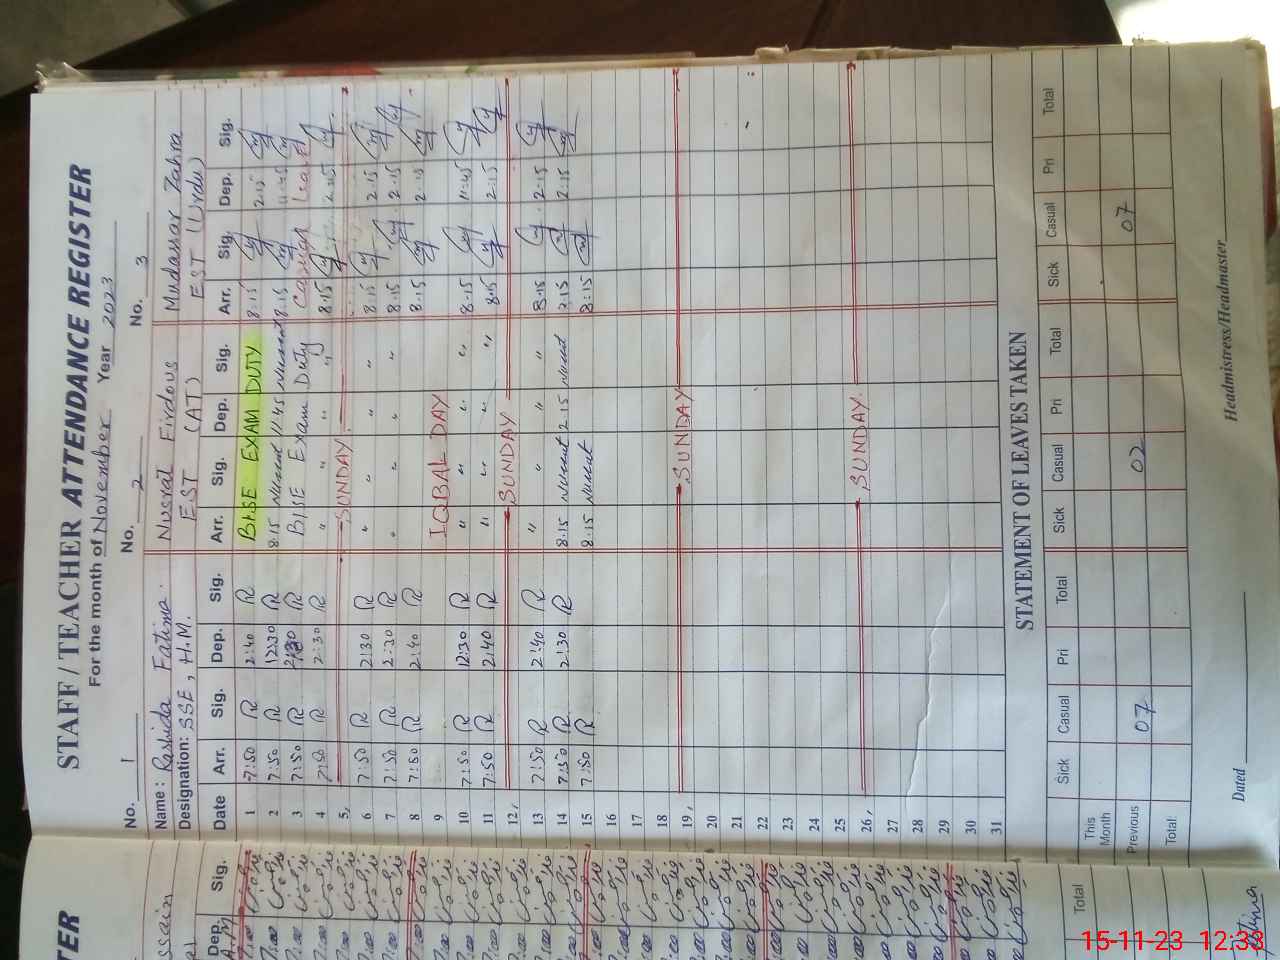 STAFF / TEACHER ATTENDANCE REGISTER
For the month of November Year 2023
No. 1 No. 2 No. 3
Name: Rashida Fatima. Nusrat Firdous Mudassar Zahra
Designation: SSE, H.M. EST (AT) EST (Urdu)
Date Arr. Sig. Dep. Sig. Arr. Sig. Dep. Sig. Arr. Sig. Dep. Sig.
1 7:50 R 2:40 R BISE EXAM DUTY 8.15 2.15
2 7:50 R 12:30 R 8.15 Nusrat 11.45 Nusrat 8.15 11.45
3 7:50 R 2:30 R BISE Exam Duty Casual leave
4 7:50 R 2:30 R " " " " 8.15 2.15
5, SUNDAY.
6 7:50 R 2:30 R " " " " 8.15 2.15
7 7:50 R 2:30 R " " " " 8.15 2.15
8 7:50 R 2:40 R 8.15 2.15
9 IQBAL DAY
10 7:50 R 12:30 R " " " " 8.15 11.45
11 7:50 R 2:40 R " " " " 8.15 2.15
12, SUNDAY
13 7:50 R 2:40 R " " " " 8.15 2.15
14 7:50 R 2:30 R 8.15 Nusrat 2.15 Nusrat 8.15 2.15
15 7:50 R 8.15 Nusrat 8.15
16
17
18
19, SUNDAY
20
21
22
23
24
25
26, SUNDAY.
27
28
29
30
31
STATEMENT OF LEAVES TAKEN
Sick Casual Pri Total Sick Casual Pri Total Sick Casual Pri Total
This Month
Previous 07 02 07
Total:
Dated Headmistress/Headmaster
TER
ssain
Dep. Sig.
Total
15-11-23 12:33